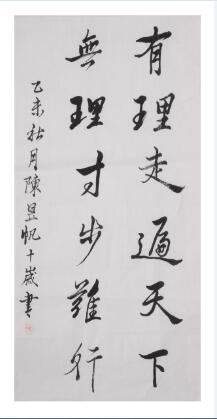 有理走遍天下
無理寸步難行
乙未秋月陳昱帆十歲書